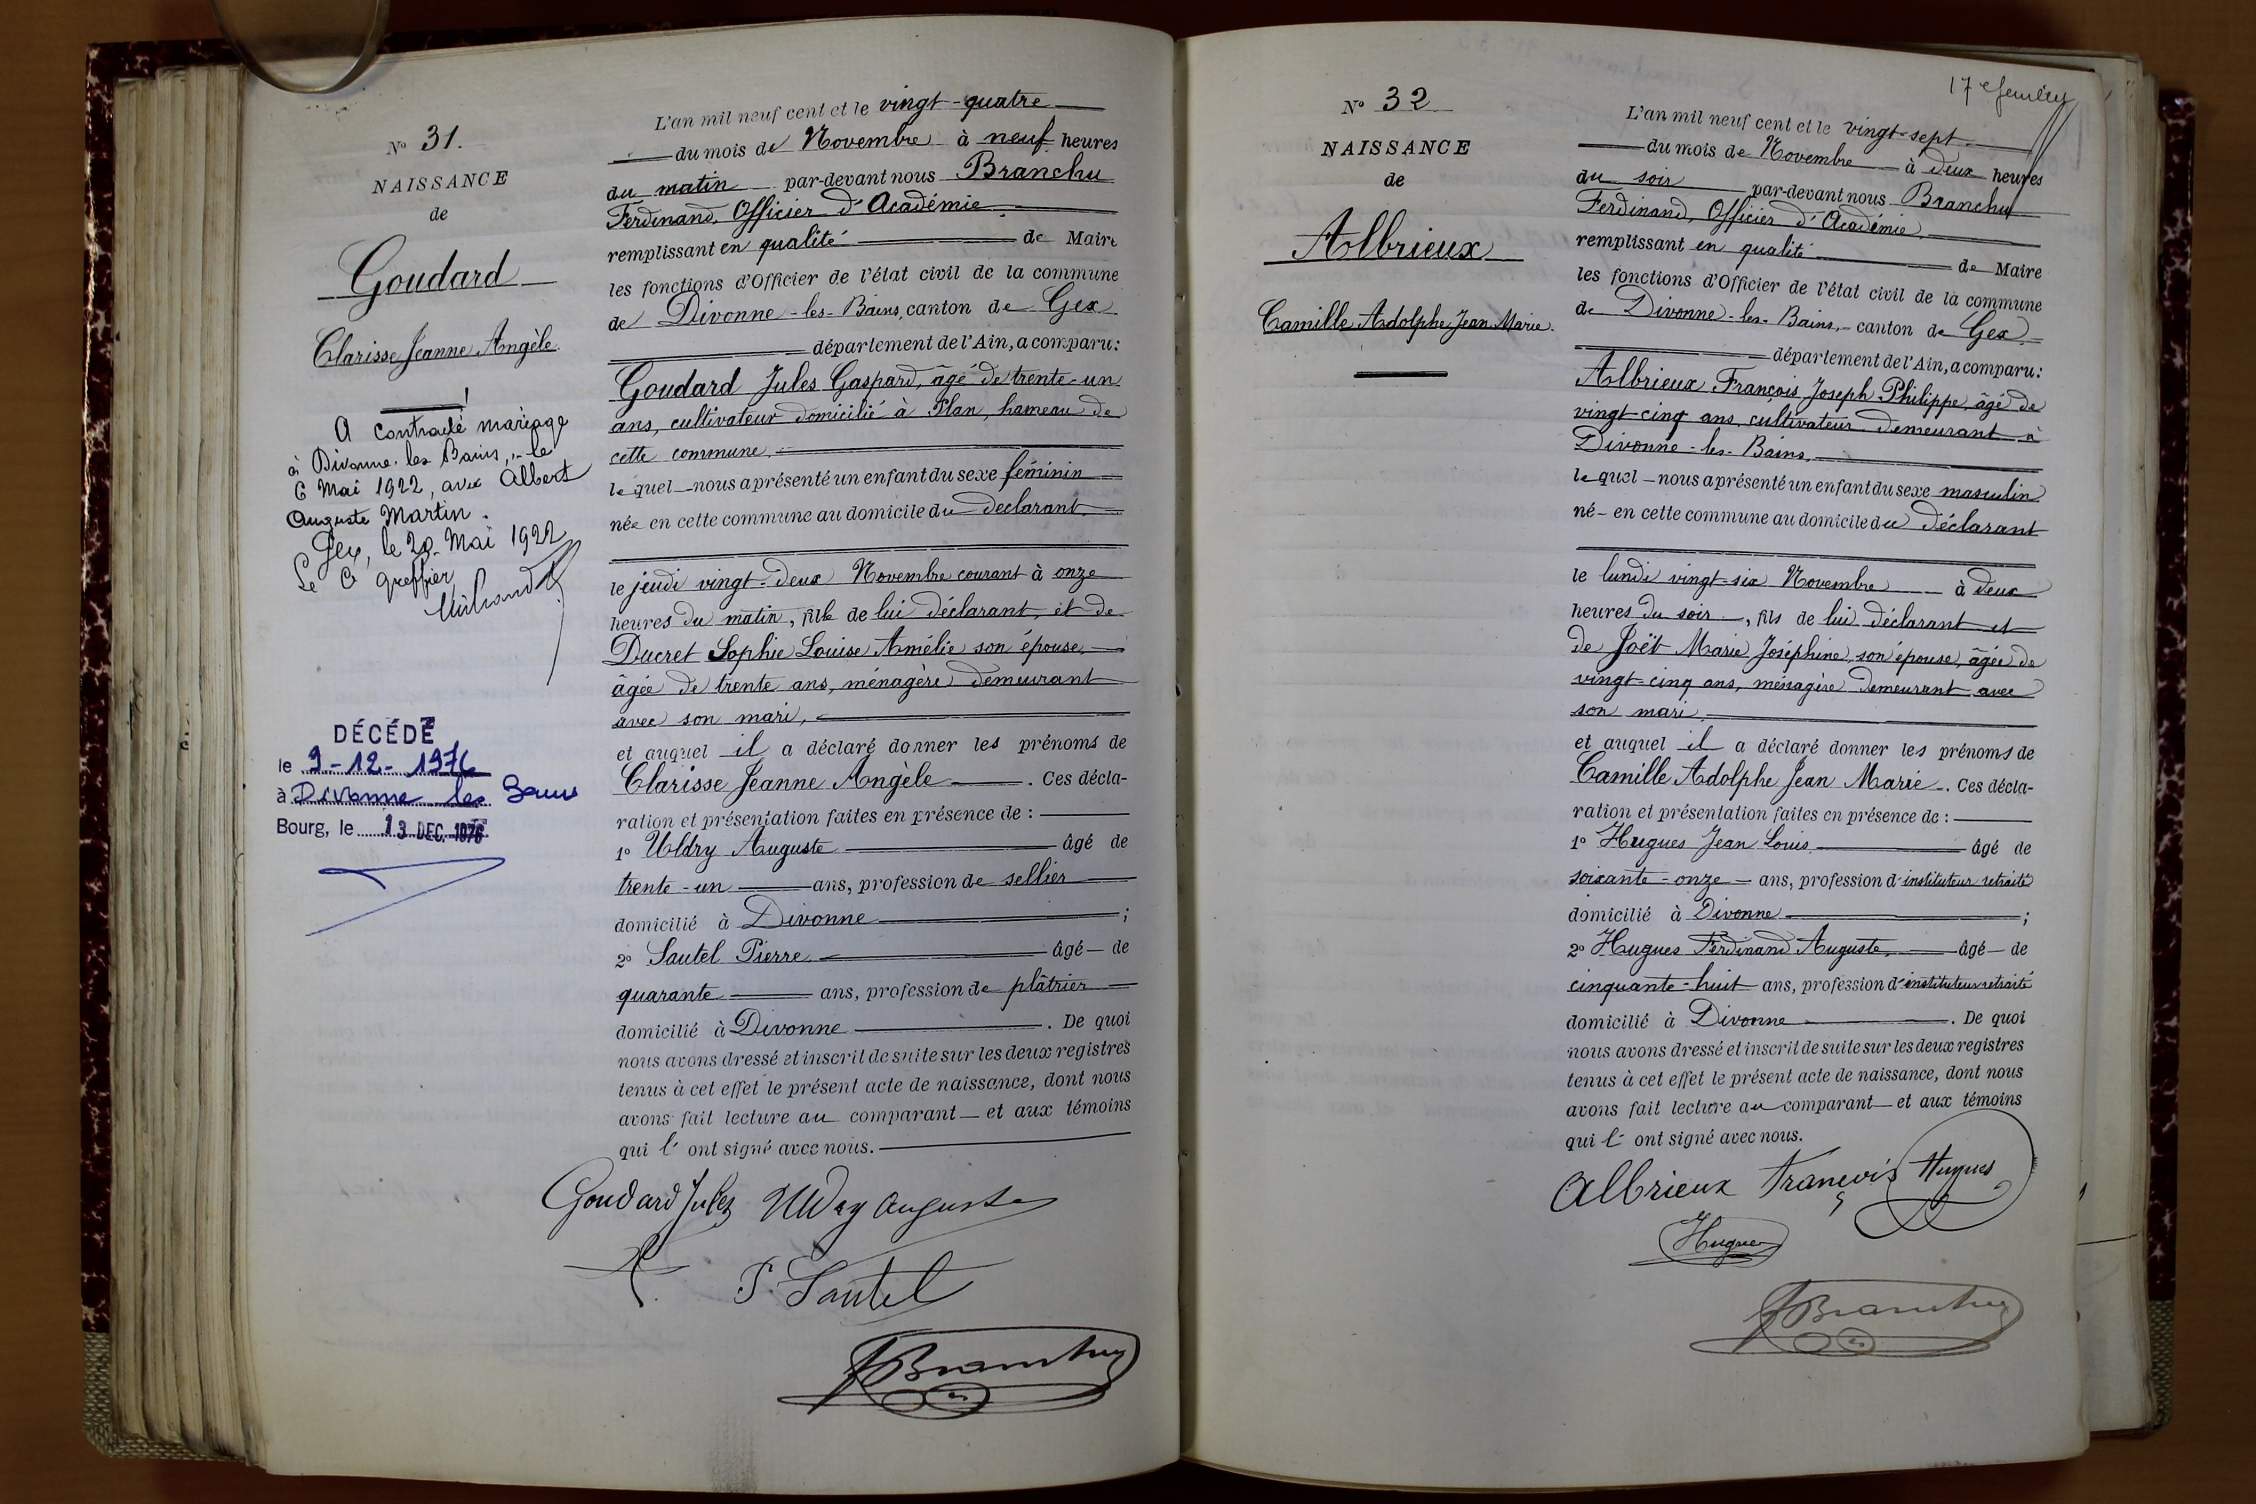 N° 31.
NAISSANCE
de
Goudard
Clarisse Jeanne Angèle.
A contracté mariage
à Divonne-les-Bains, le
6 Mai 1922, avec Albert
Auguste Martin.
Gex, le 20 Mai 1922
Le Greffier
DÉCÉDÉ
le 9-12-1976
à Divonne les Bains
Bourg, le 13 DEC. 1976
L'an mil neuf cent et le vingt-quatre
du mois de Novembre à neuf heures
du matin par-devant nous Branchu
Ferdinand, Officier d'Académie
remplissant en qualité de Maire
les fonctions d'Officier de l'état civil de la commune
de Divonne-les-Bains, canton de Gex
département de l'Ain, a comparu:
Goudard Jules Gaspard, âgé de trente-un
ans, cultivateur domicilié à Plan, hameau de
cette commune,
lequel nous a présenté un enfant du sexe féminin
née en cette commune au domicile du déclarant
le jeudi vingt-deux Novembre courant à onze
heures du matin, fille de lui déclarant, et de
Ducret Sophie Louise Amélie son épouse
âgée de trente ans, ménagère demeurant
avec son mari,
et auquel il a déclaré donner les prénoms de
Clarisse Jeanne Angèle. Ces décla-
ration et présentation faites en présence de :
1° Uldry Auguste âgé de
trente-un ans, profession de sellier
domicilié à Divonne ;
2° Sautel Pierre âgé de
quarante ans, profession de plâtrier
domicilié à Divonne. De quoi
nous avons dressé et inscrit de suite sur les deux registres
tenus à cet effet le présent acte de naissance, dont nous
avons fait lecture au comparant et aux témoins
qui l'ont signé avec nous.
Goudard Jules Uldry Auguste
P. Sautel
FBranchu
17e feuillet
N° 32
NAISSANCE
de
Albrieux
Camille Adolphe Jean Marie.
L'an mil neuf cent et le vingt-sept
du mois de Novembre à deux heures
du soir par-devant nous Branchu
Ferdinand, Officier d'Académie
remplissant en qualité de Maire
les fonctions d'Officier de l'état civil de la commune
de Divonne-les-Bains, canton de Gex
département de l'Ain, a comparu:
Albrieux François Joseph Philippe, âgé de
vingt-cinq ans, cultivateur demeurant à
Divonne-les-Bains,
lequel nous a présenté un enfant du sexe masculin
né en cette commune au domicile du déclarant
le lundi vingt-six Novembre à deux
heures du soir, fils de lui déclarant et
de Joët Marie Joséphine, son épouse, âgée de
vingt-cinq ans, ménagère demeurant avec
son mari,
et auquel il a déclaré donner les prénoms de
Camille Adolphe Jean Marie. Ces décla-
ration et présentation faites en présence de :
1° Hugues Jean Louis âgé de
soixante-onze ans, profession d'instituteur retraité
domicilié à Divonne ;
2° Hugues Ferdinand Auguste, âgé de
cinquante-huit ans, profession d'instituteur retraité
domicilié à Divonne. De quoi
nous avons dressé et inscrit de suite sur les deux registres
tenus à cet effet le présent acte de naissance, dont nous
avons fait lecture au comparant et aux témoins
qui l'ont signé avec nous.
Albrieux François Hugues
Hugues
FBranchu